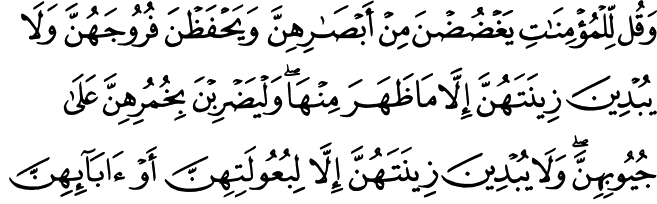 وَقُل لِّلْمُؤْمِنَـٰتِ يَغْضُضْنَ مِنْ أَبْصَـٰرِهِنَّ وَيَحْفَظْنَ فُرُوجَهُنَّ وَلَا
يُبْدِينَ زِينَتَهُنَّ إِلَّا مَا ظَهَرَ مِنْهَا ۖ وَلْيَضْرِبْنَ بِخُمُرِهِنَّ عَلَىٰ
جُيُوبِهِنَّ ۖ وَلَا يُبْدِينَ زِينَتَهُنَّ إِلَّا لِبُعُولَتِهِنَّ أَوْ ءَابَآئِهِنَّ